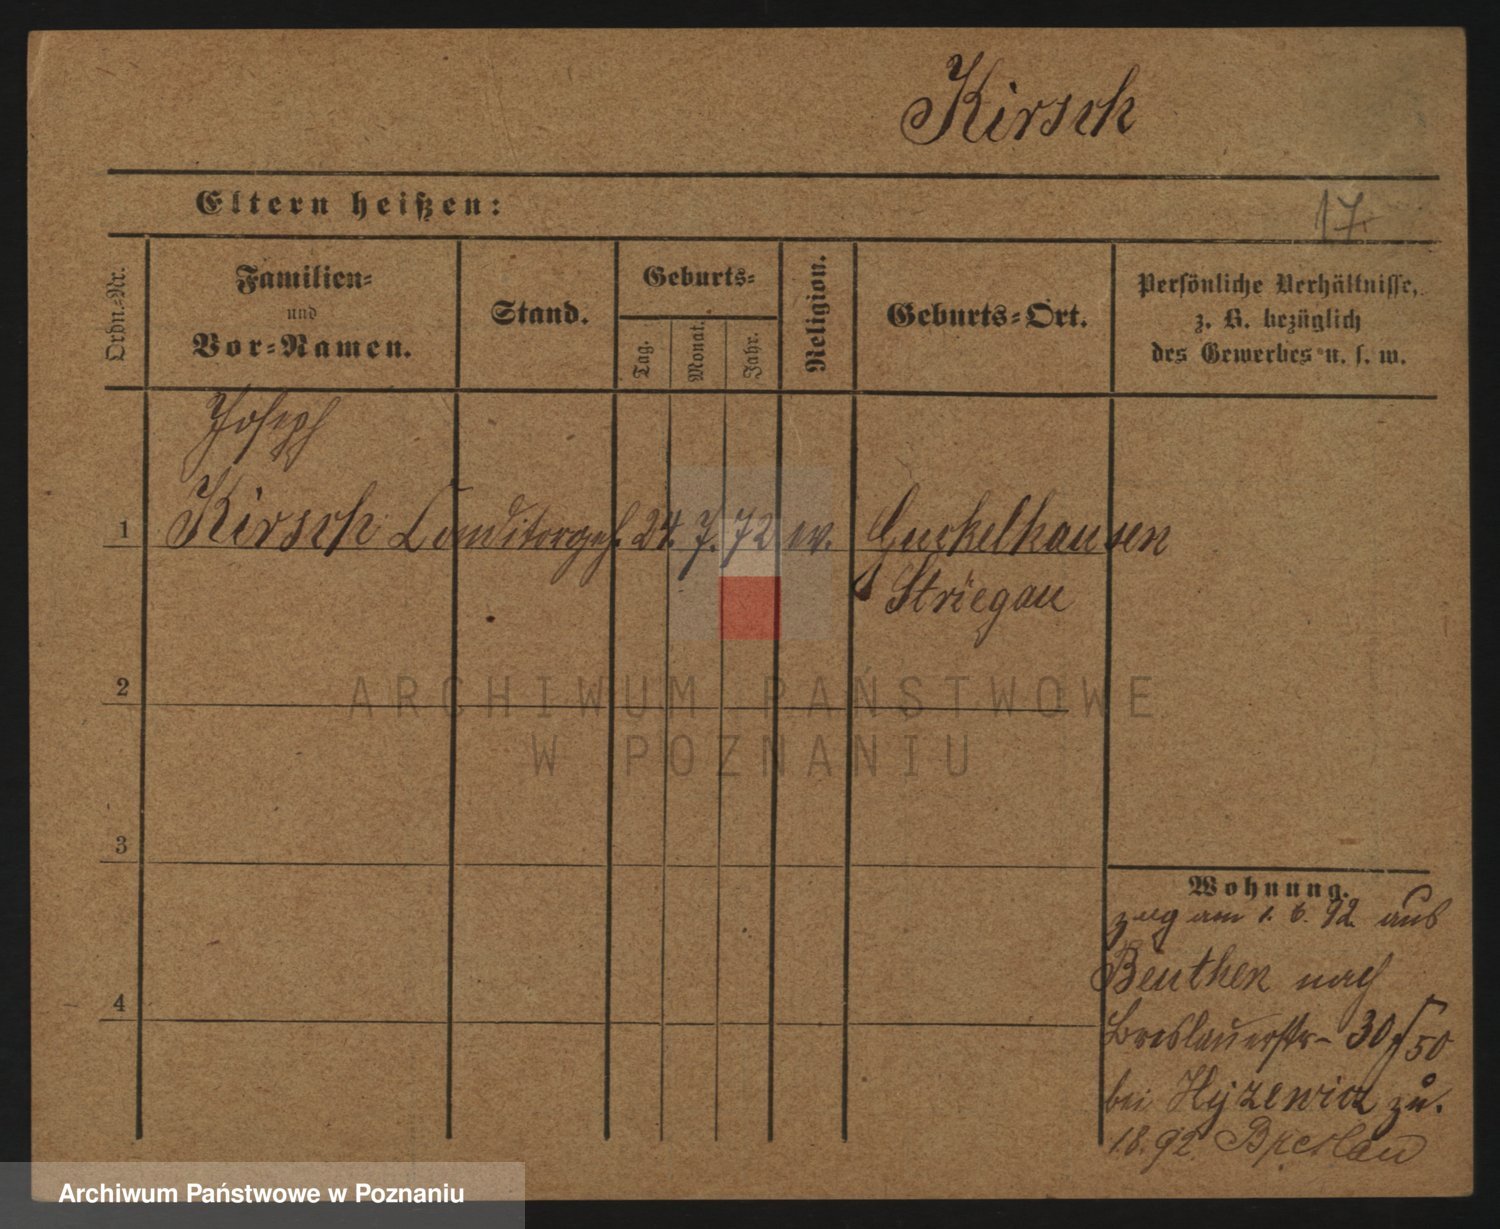 Kirsch
Eltern heißen:
17.
Ordn.-Nr.
Familien-
und
Vor-Namen.
Stand.
Geburts-
Tag.
Monat.
Jahr.
Religion.
Geburts-Ort.
Persönliche Verhältnisse,
z. B. bezüglich
des Gewerbes u. s. w.
Joseph
1 Kirsch Conditorgeh. 24. 7. 72 ev. Guckelhausen
Striegau
2
3
4
Wohnung.
zug am 1. 6. 92. aus
Beuthen nach
Breslauerstr- 30/50
bei Hyzewicz zu.
1.8.92. Breslau
ARCHIWUM PAŃSTWOWE
W POZNANIU
Archiwum Państwowe w Poznaniu